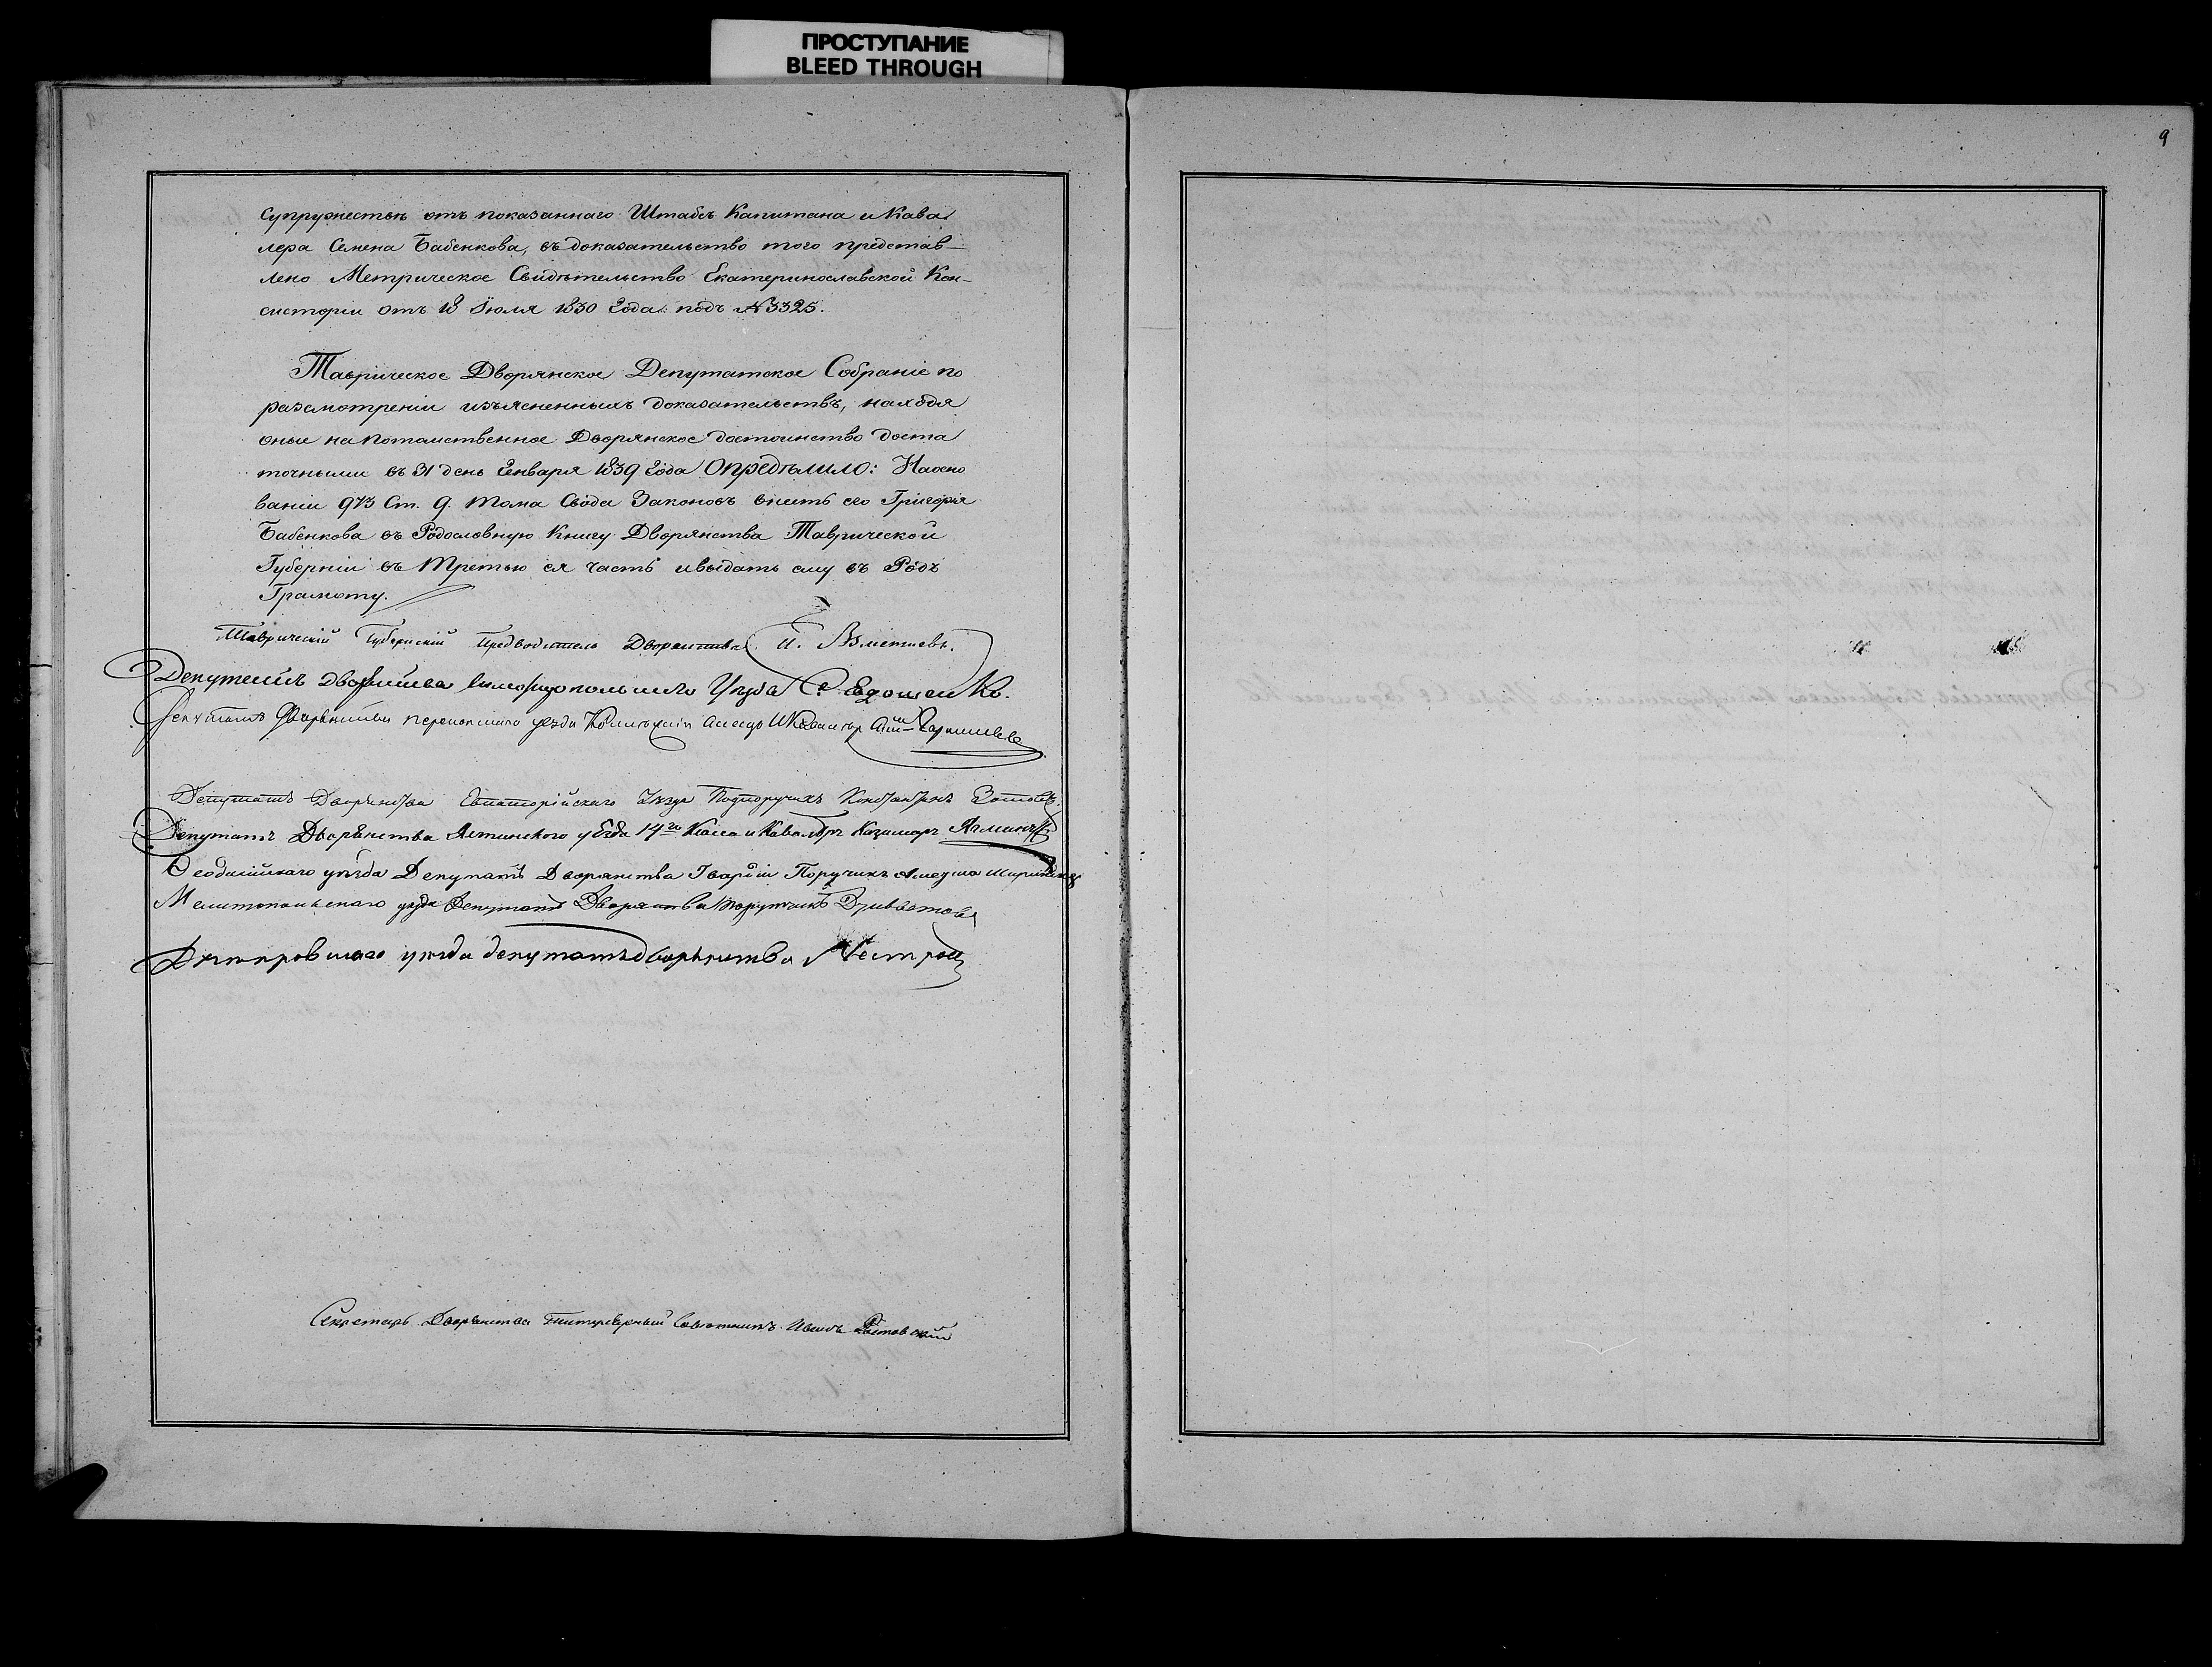 ПРОСТУПАНИЕ
BLEED THROUGH
9
Супружествѣ отъ показаннаго Штабсъ Капитана и Кава
лера Семена Бабенкова, въ доказательство того представ-
лено Метрическое Свидѣтельство Екатеринославской Кон-
систоріи отъ 18 Іюля 1830 Года подъ №3325.
Таврическое Дворянское Депутатское Собраніе по
разсмотреніи изъясненныхъ доказательствъ, находя
оные на потомственное Дворянское достоинство доста
точными въ 31 день Генваря 1839 Года Опредѣлило: На осно
ваніи 973 Ст. 9. тома Свода Законовъ внесть его Григорія
Бабенкова въ Родословную Книгу Дворянства Таврической
Губерніи въ Третью ея часть и выдать ему въ Родъ
Грамоту.
Таврическій Губернскій Предводитель Дворянства
Депутатъ Дворянства Симферопольскаго Уѣзда С. Евдошенко.
Депутатъ Дворянства Перекопскаго уезда
Депутатъ Дворянства Евпаторійскаго Уезда Подпоручикъ Константинъ Зотовъ.
Депутатъ Дворянства Ялтинского уѣзда 14го Класа и Кавалеръ Казимиръ
Ѳеодосійскаго уѣзда Депутатъ Дворянства Гвардіи Поручикъ
Мелитопольскаго уезда Депутатъ Дворянства Порутчикъ
Днепровскаго уезда депутатъ дворянства
Секретарь Дворянства Титулярный Советникъ Иванъ